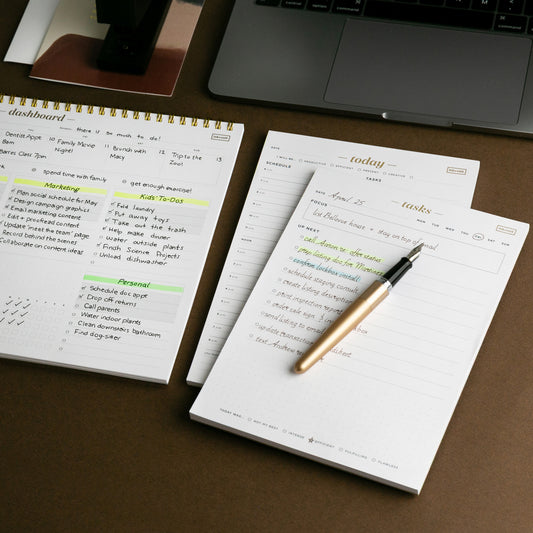 dashboard
there is so much to do!
Dentist Appt
8am
Barre Class 7pm
10
Family Movie
Night!
11
Brunch with
Macy
12
Trip to the
Zoo!
13
spend time with family
get enough exercise!
Marketing
Plan social schedule for May
Design campaign graphics
Email marketing content
Edit + proofread content
Update 'meet the team' page
Record behind the scenes
Collaborate on content ideas
Kids' To-Dos
Fold laundry
Put away toys
Take out the trash
Help make dinner
Water outside plants
Finish Science Projects
Unload dishwasher
Personal
Schedule doc appt
Drop off returns
Call parents
Water indoor plants
Clean downstairs bathroom
Find dog-sitter
today
I WILL BE: PRODUCTIVE EFFICIENT PRESENT CREATIVE
SCHEDULE
TASKS
NOON
tasks
DATE April 25
MON TUE WED THU FRI SAT SUN
FOCUS
list Bellevue house + stay on top of email
UP NEXT
prep listing doc for
confirm lockbox install
schedule staging consult
create listing description
TODAY WAS... NOT MY BEST INTENSE EFFICIENT FULFILLING FLAWLESS